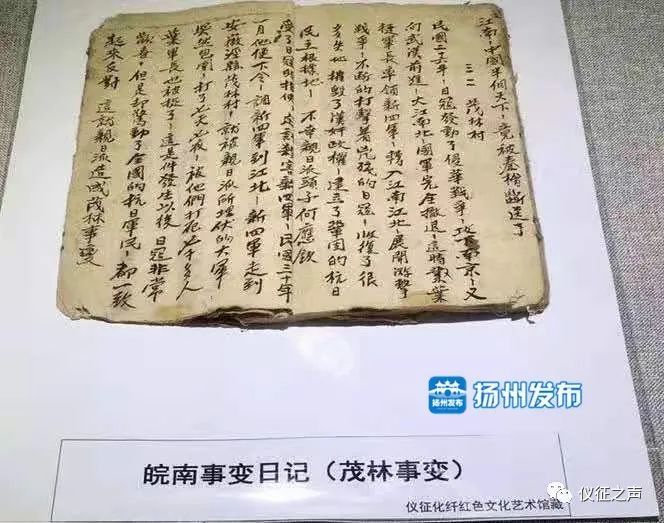 江南~中國半個天下~竟被秦檜斷送了
三二 茂林村
民國二六年~日寇發動了侵華戰爭~攻下南京~又
向武漢前進~大江南北國軍完全撤退~這時葉
軍長率領新四軍~插入江南江北~展開游擊
戰爭~不斷的打擊著兇殘的日寇~收復了很
多失地~摧毀了漢奸政權~建立了鞏固的抗日
民主根據地~不幸親日派頭子何應欽
受了日寇的指使~害新四軍~民國三十年
一月他便下令~調新四軍到江北~新四軍走到
安徽涇縣茂林村~就被親日派所埋伏的大軍
突然包圍~打了七天七夜~被他們打死七千多人
葉軍長也被捉了~這是件發生以後 日寇非常
歡喜~但是却驚動了全國的抗日軍民~都一致
起來反對 這就親日派造成茂林事變
扬州发布
扬州发布
皖南事变日记（茂林事变）
仪征化纤红色文化艺术馆藏
仪征之声